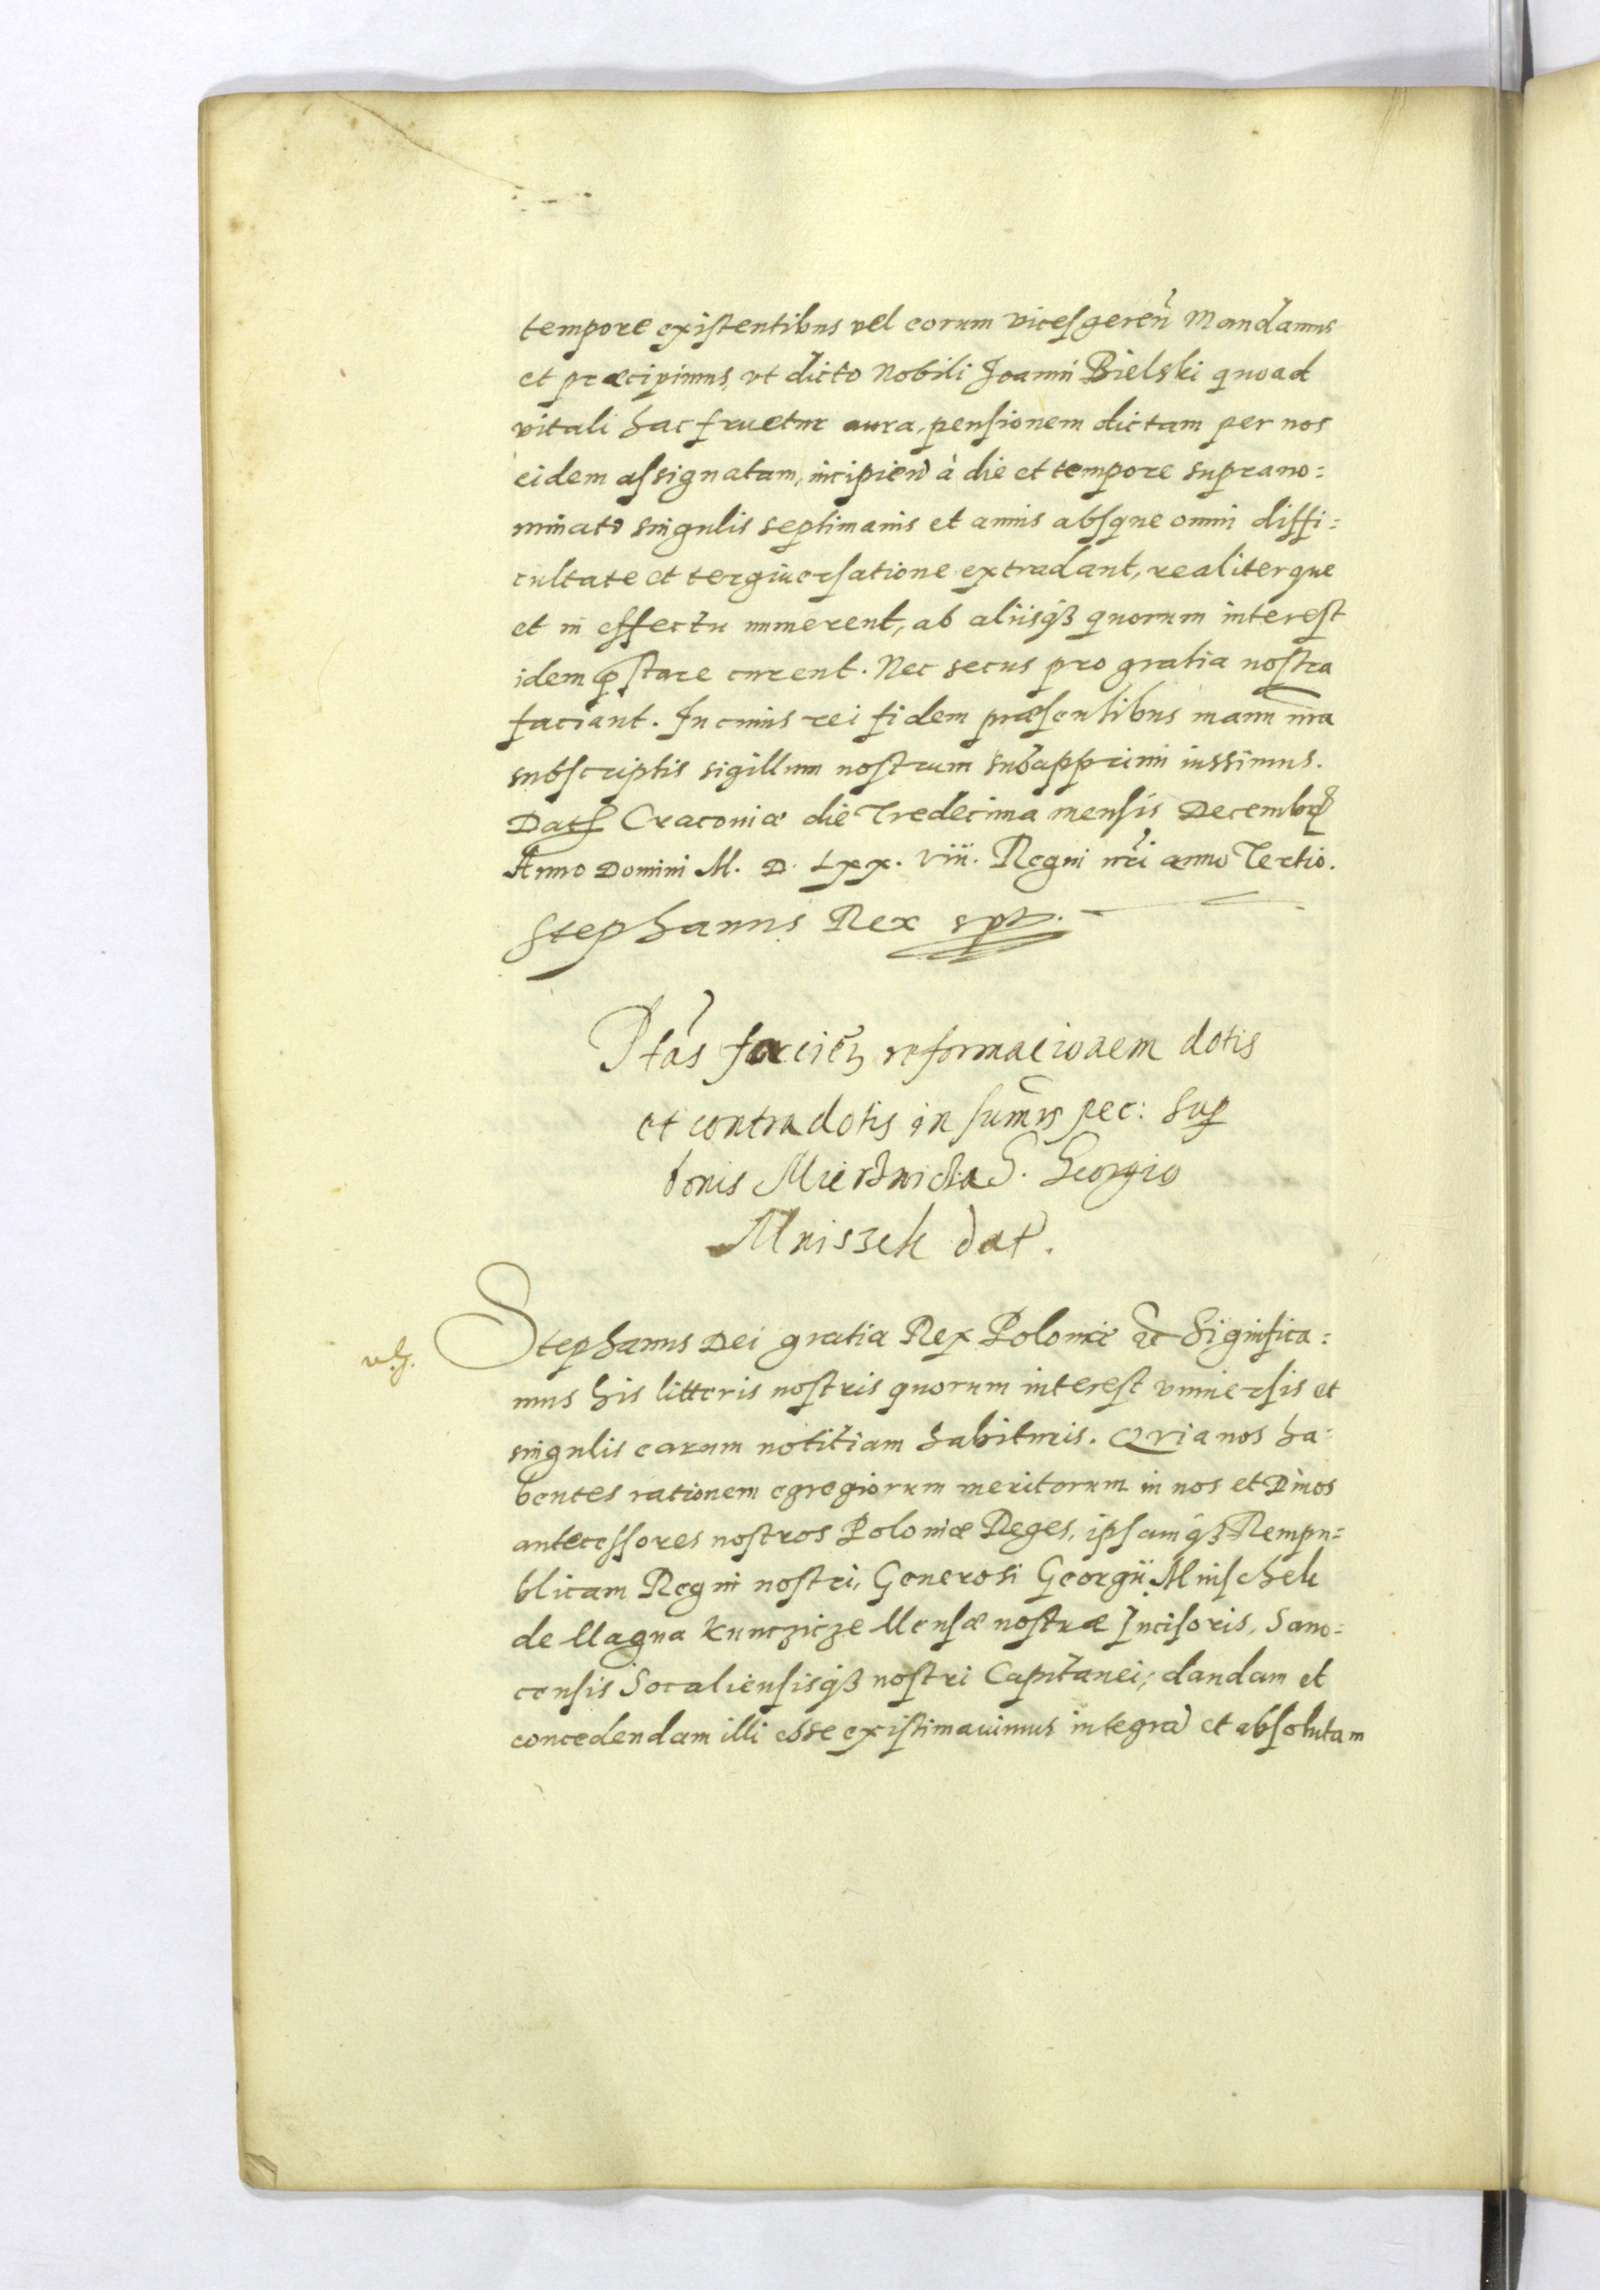 tempore existentibus vel eorum vicesgeren̄ Mandamus
et præcipimus, vt dicto Nobili Joanni Bielski quoad
vitali hac fruetur aura, pensionem dictam per nos
eidem assignatam, incipien̄ à die et tempore suprano=
minato singulis septimanis et annis absque omni diffi=
cultate et tergiuersatione extradant, realiterque
et in effectu numerent, ab aliisq3 quorum interest
idem p̄stare curent. Nec secus pro gratia nostra
faciant. In cuius rei fidem præsentibus manu n̄ra
subscriptis sigillum nostrum subapprimi iussimus.
Dat Cracoviæ die Tredecima mensis Decembr
Anno Domini M. D. Lxx. viii. Regni n̄ri anno Tertio.
Stephanus Rex sp̄t.
reformacionem dotis
et contradotis in summis pec: sup
bonis G. Georgio
Mniszek dat.
Stephanus Dei gratia Rex Poloniæ etc Significa=
mus his litteris nostris quorum interest vniuersis et
singulis earum notitiam habituris. Qvia nos ha=
bentes rationem egregiorum meritorum in nos et Diuos
antecessores nostros Poloniæ Reges, ipsamq3 Rempu=
blicam Regni nostri, Generosi Georgii Mnischek
de Magna Kunczicze Mensæ nostræ Incisoris, Sano=
censis Socaliensisq3 nostri Capitanei, dandam et
concedendam illi esse existimauimus integrā et absolutam